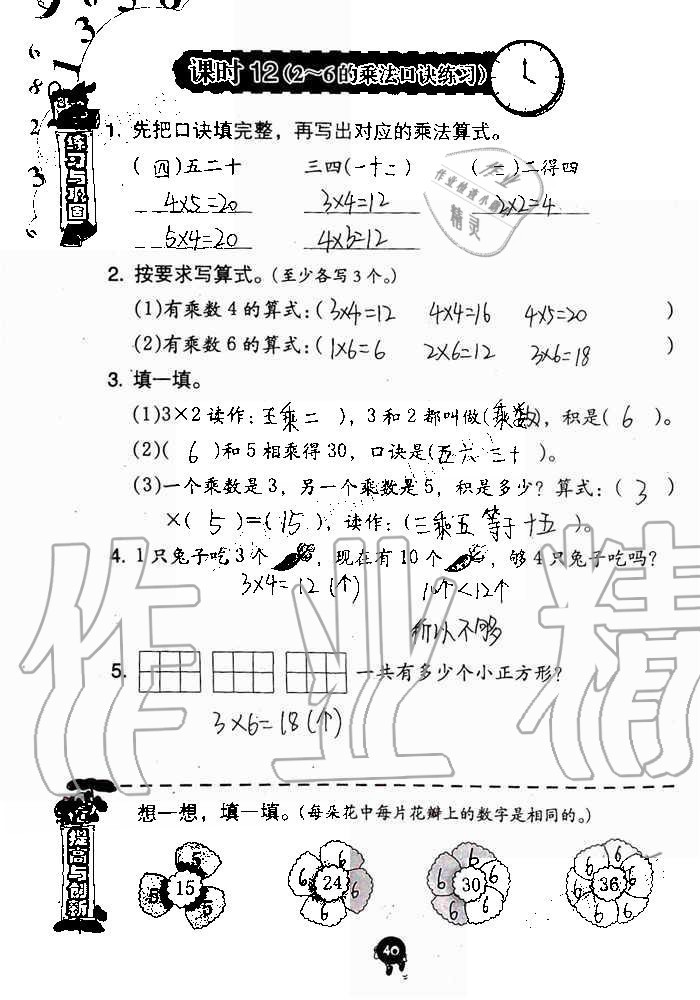 课时 12(2～6的乘法口诀练习)
练习与巩固
1. 先把口诀填完整，再写出对应的乘法算式。
(四)五二十 三四(一十二) (二)二得四
4×5=20 3×4=12 2×2=4
5×4=20 4×3=12
2. 按要求写算式。(至少各写3个。)
(1)有乘数4的算式:(3×4=12 4×4=16 4×5=20 )
(2)有乘数6的算式:(1×6=6 2×6=12 3×6=18 )
3. 填一填。
(1)3×2读作:三乘二 ), 3和2都叫做(乘数), 积是( 6 )。
(2)( 6 )和5相乘得30, 口诀是(五六三十 )。
(3)一个乘数是3, 另一个乘数是5, 积是多少? 算式:( 3 )
×( 5 )=(15 ), 读作:(三乘五等于十五)。
4. 1只兔子吃3个 , 现在有10个 , 够4只兔子吃吗?
3×4=12(个) 10个<12个
所以不够
5. 一共有多少个小正方形?
3×6=18(个)
提高与创新
想一想，填一填。(每朵花中每片花瓣上的数字是相同的。)
5 5 5 15
6 6 6 6 24
6 6 6 6 6 30
6 6 6 6 6 6 36
40
作业精灵